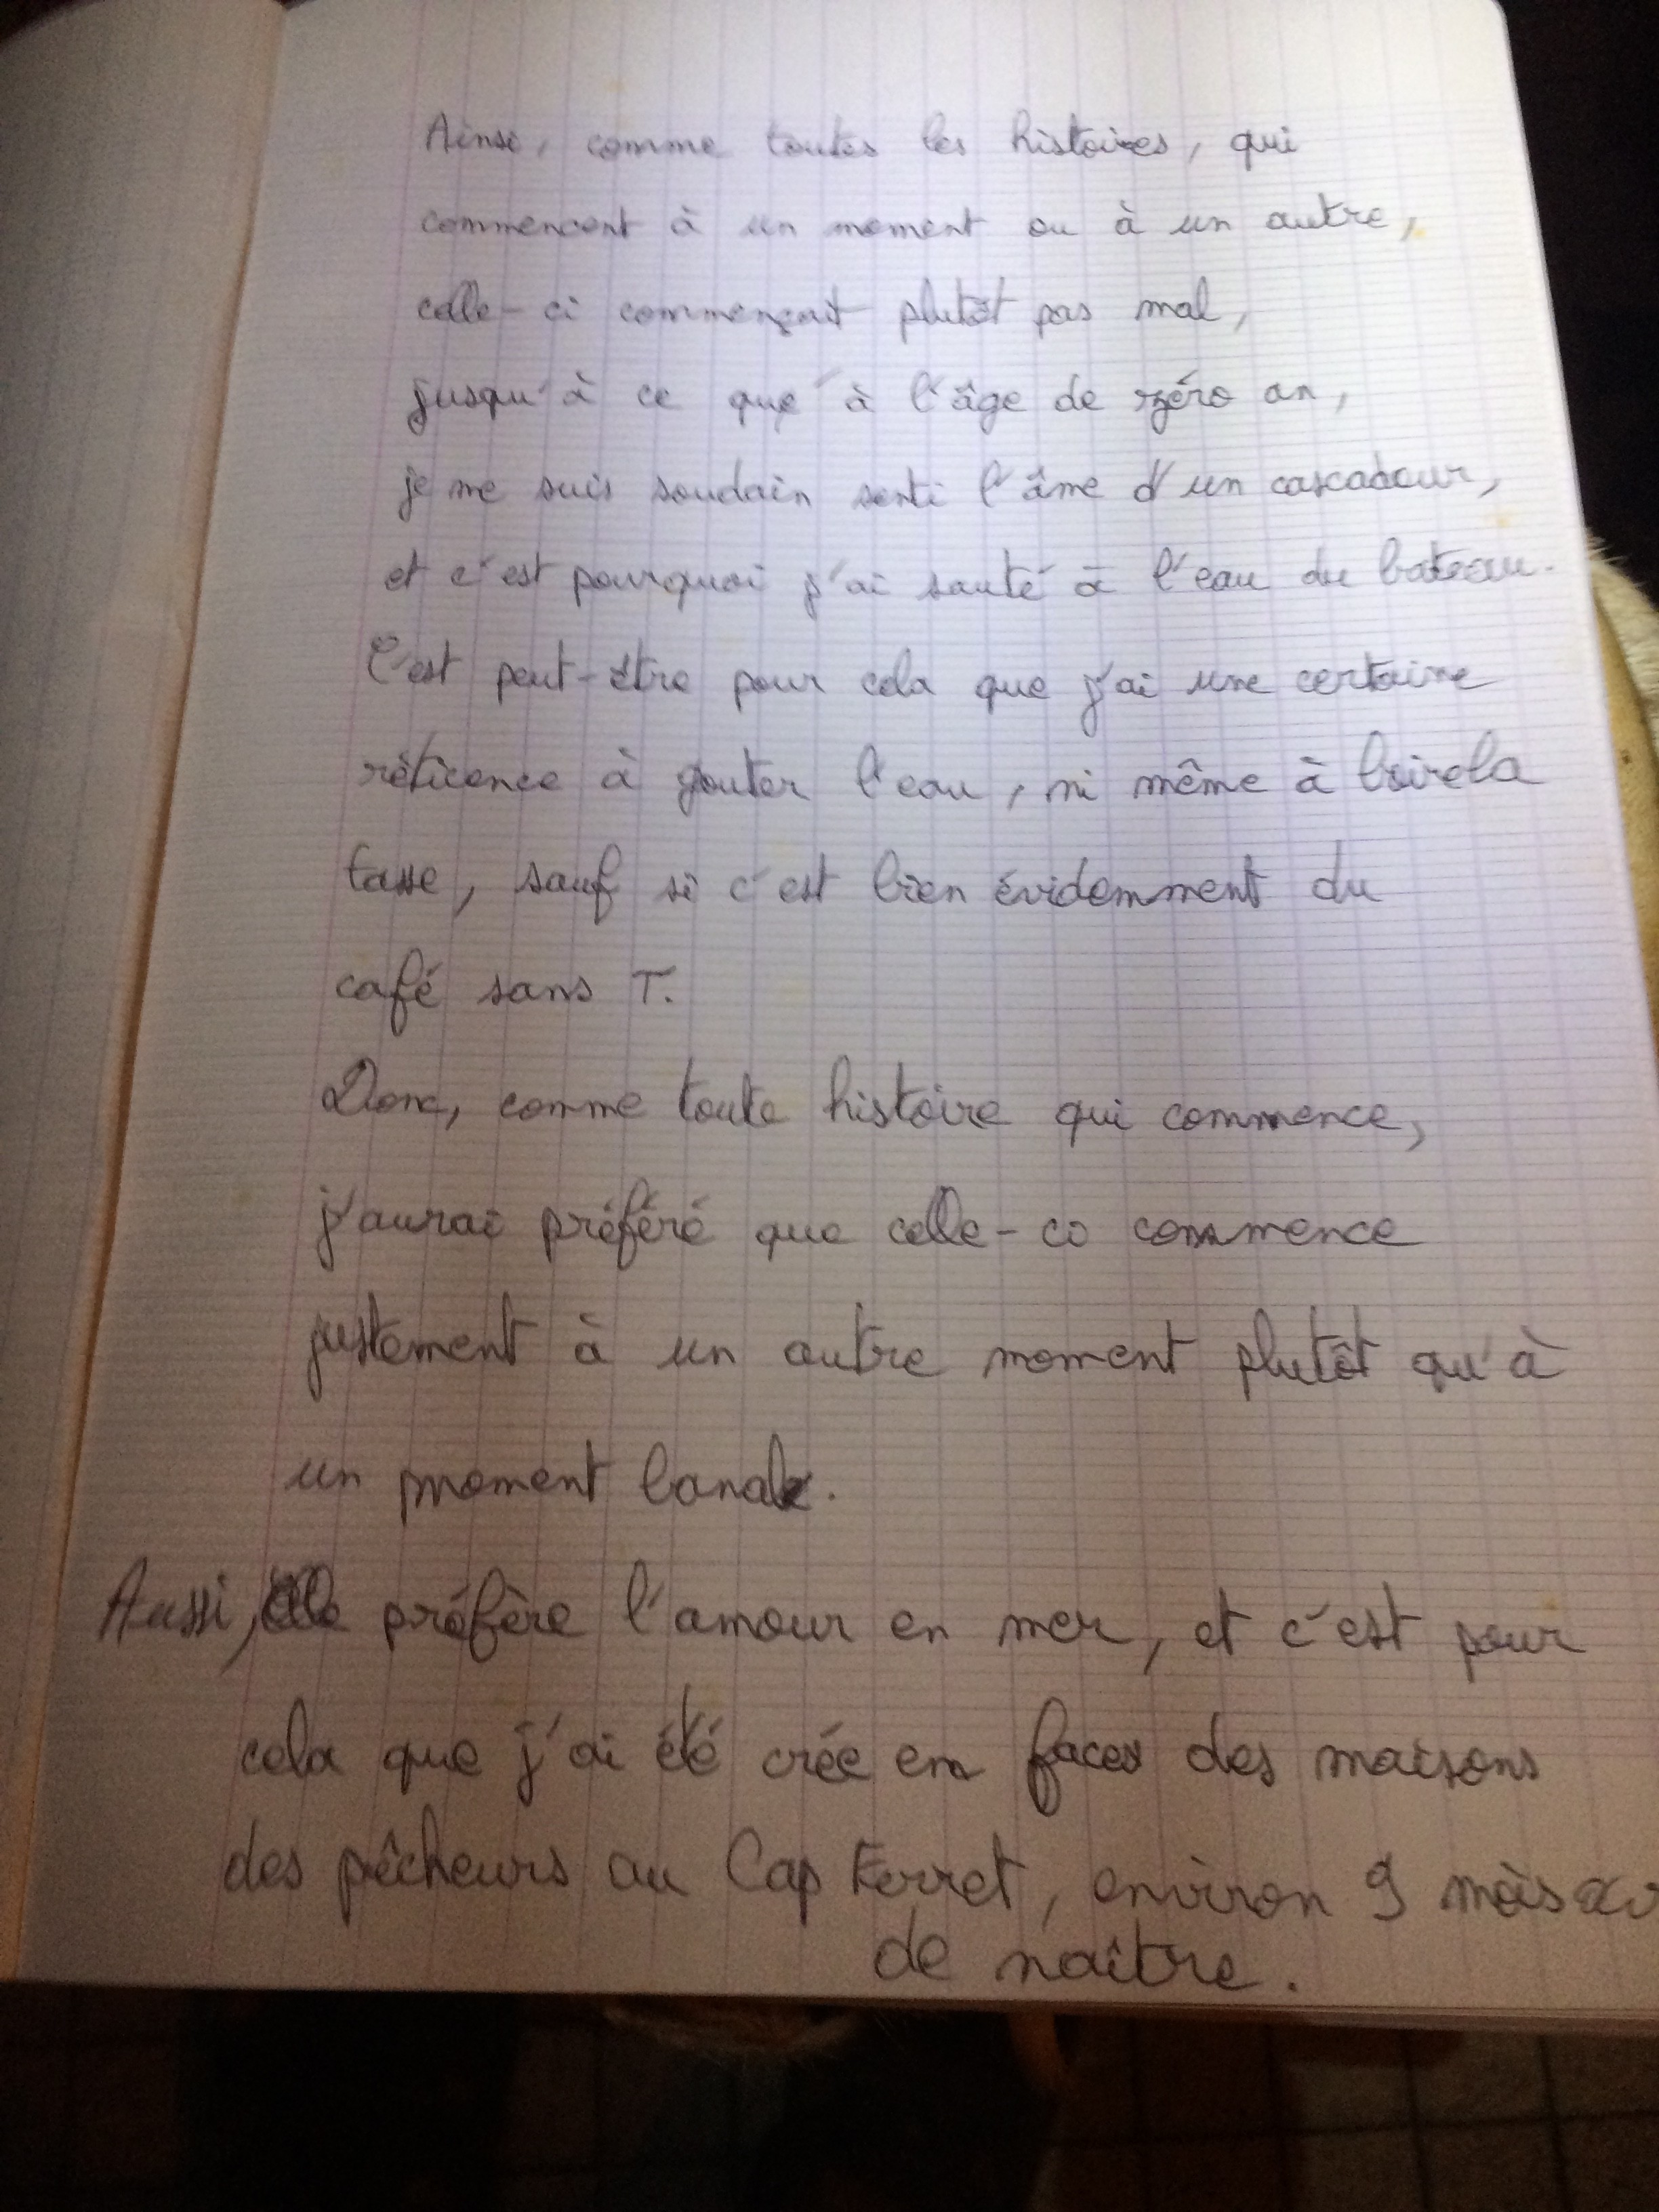 Ainsi, comme toutes les histoires, qui
commencent à un moment ou à un autre,
celle-ci commençait plutôt pas mal,
jusqu'à ce que à l'âge de zéro an,
je me suis soudain senti l'âme d'un cascadeur,
et c'est pourquoi j'ai sauté à l'eau du bateau.
C'est peut-être pour cela que j'ai une certaine
réticence à gouter l'eau, ni même à boire la
tasse, sauf si c'est bien évidemment du
café sans T.
Donc, comme toute histoire qui commence,
j'aurai préféré que celle-ci commence
justement à un autre moment plutôt qu'à
un moment banal.
Aussi, elle préfère l'amour en mer, et c'est pour
cela que j'ai été crée en face des maisons
des pêcheurs au Cap Ferret, environ 9 mois
de naître.